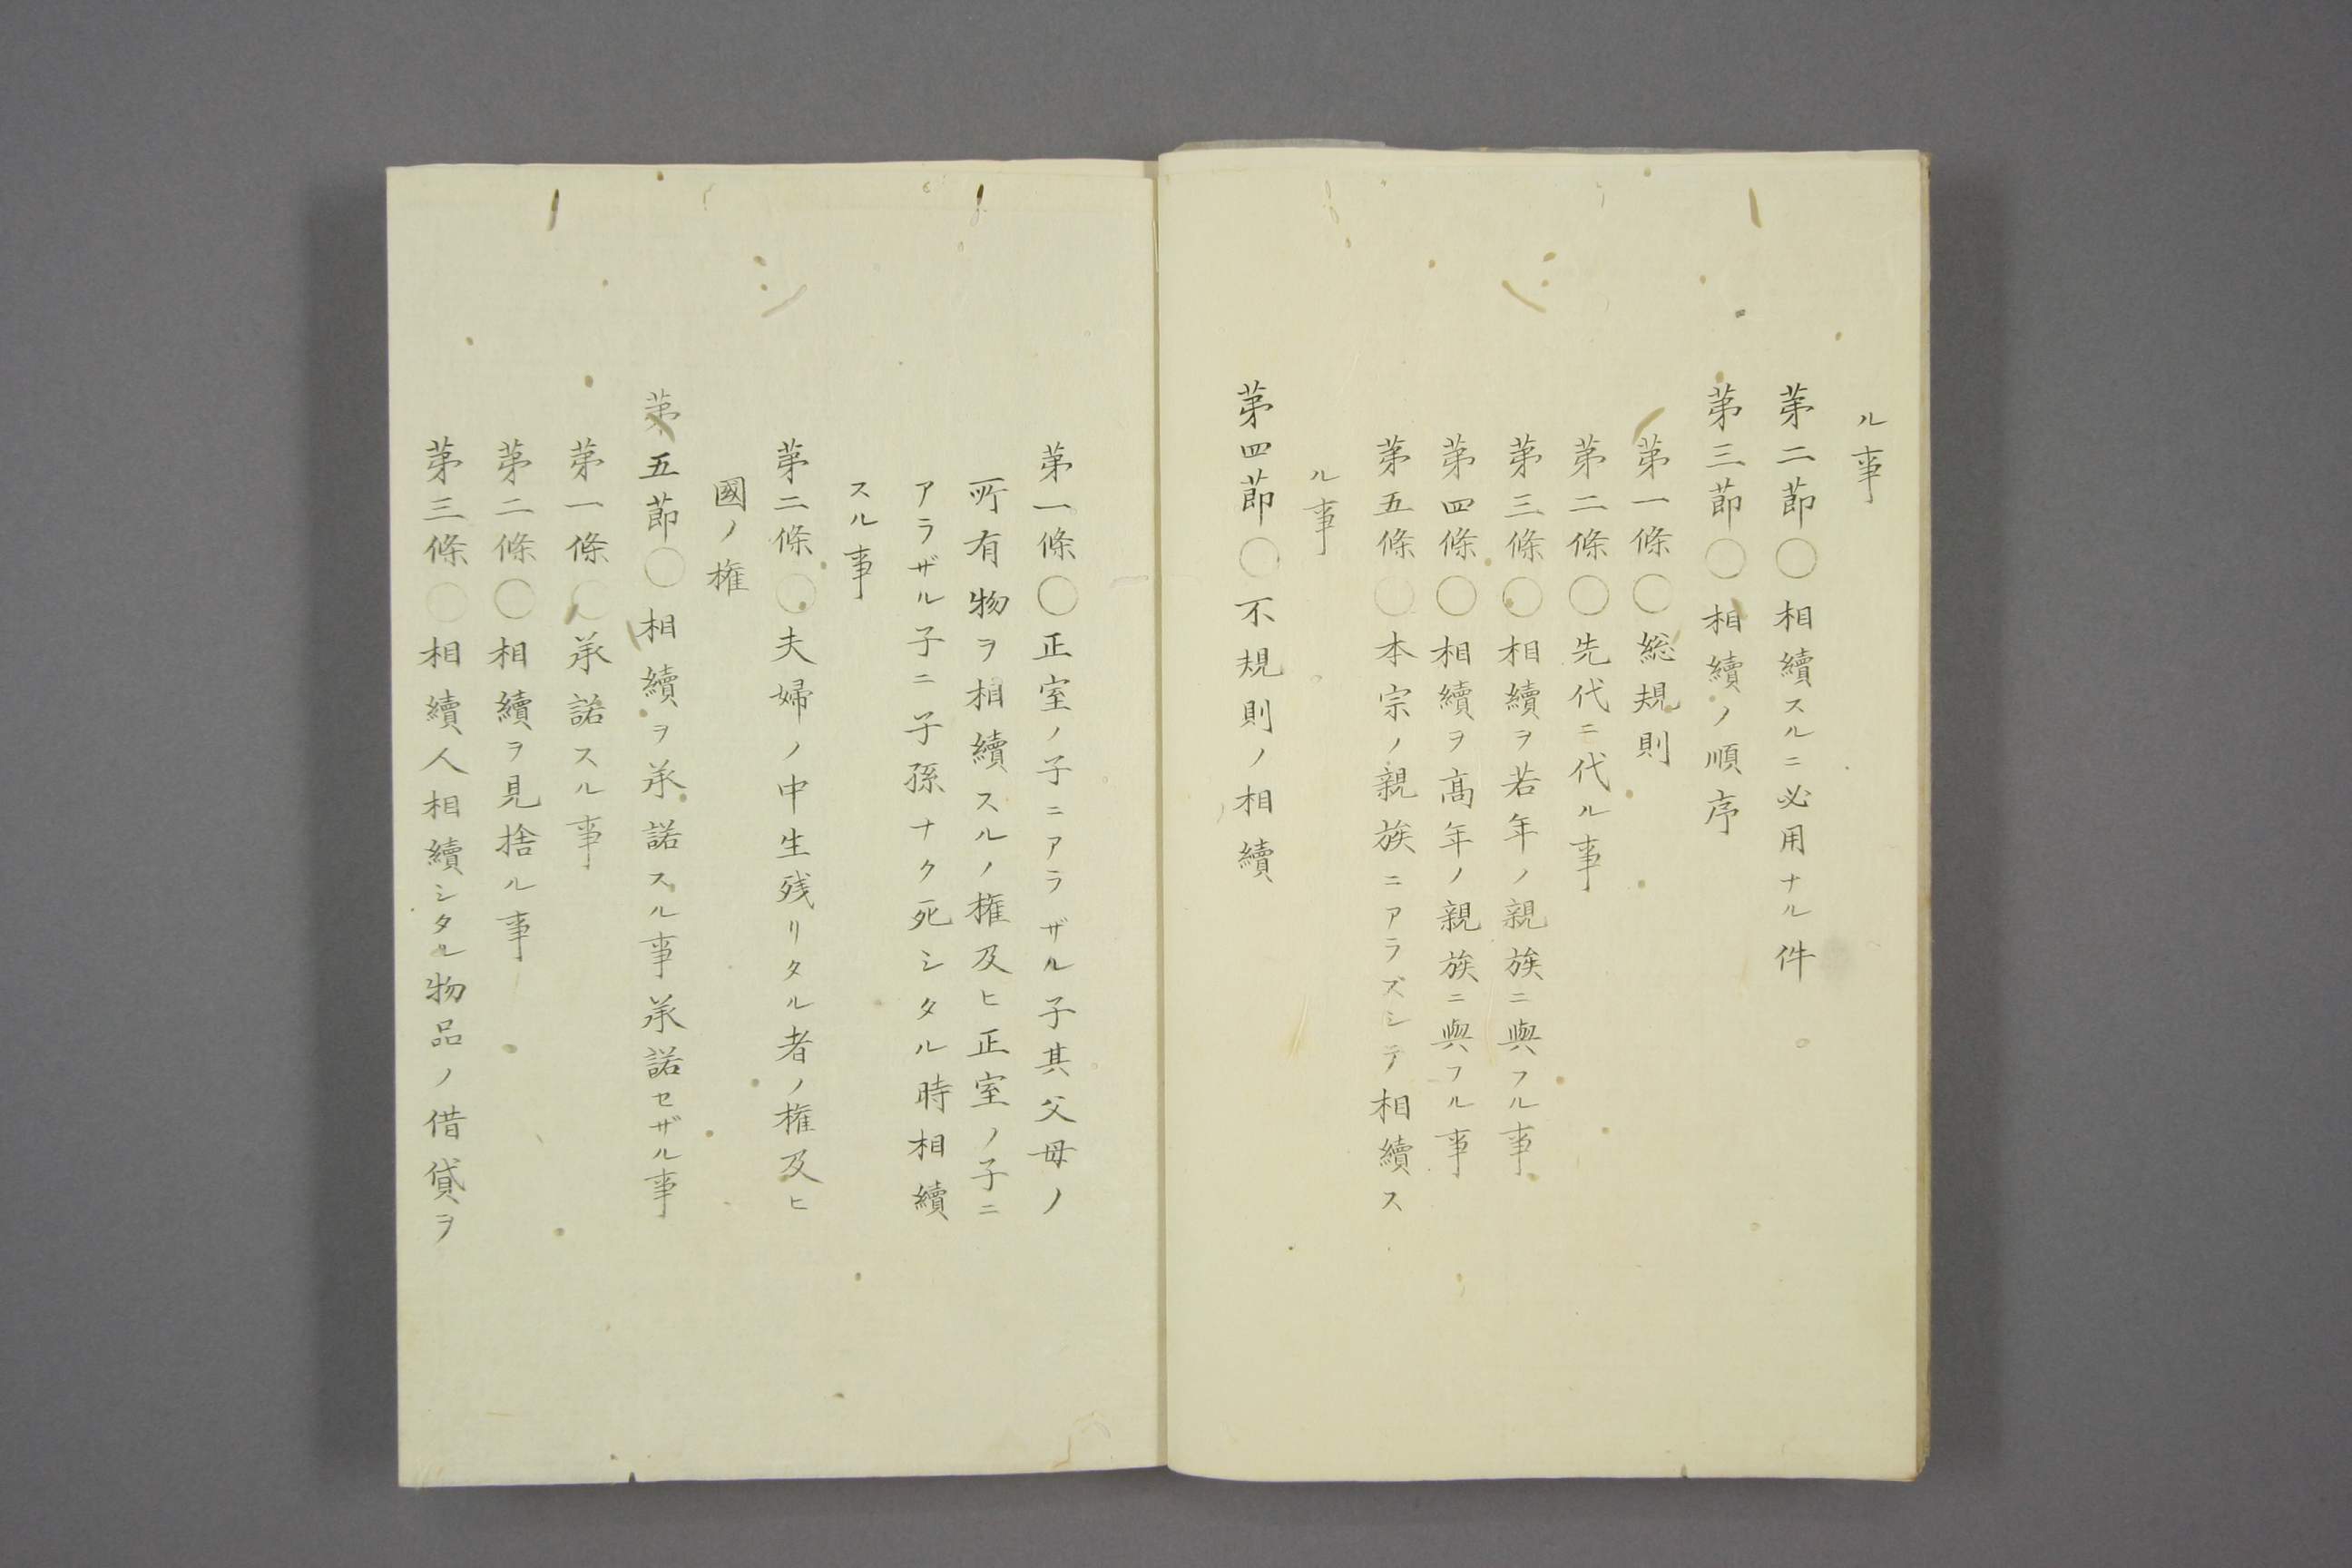 ル事
第二節〇相續スルニ必用ナル件
第三節〇相續ノ順序
第一條〇総規則
第二條〇先代ニ代ル事
第三條〇相續ヲ若年ノ親族ニ與フル事
第四條〇相續ヲ髙年ノ親族ニ與フル事
第五條〇本宗ノ親族ニアラズシテ相續ス
ル事
第四節〇不規則ノ相續
第一條〇正室ノ子ニアラザル子其父母ノ
所有物ヲ相續スルノ権及ヒ正室ノ子ニ
アラザル子ニ子孫ナク死シタル時相續
スル事
第二條〇夫婦ノ中生残リタル者ノ権及ヒ
國ノ権
第五節〇相續ヲ承諾スル事承諾セザル事
第一條〇承諾スル事
第二條〇相續ヲ見捨ル事
第三條〇相續人相續シタル物品ノ借貸ヲ